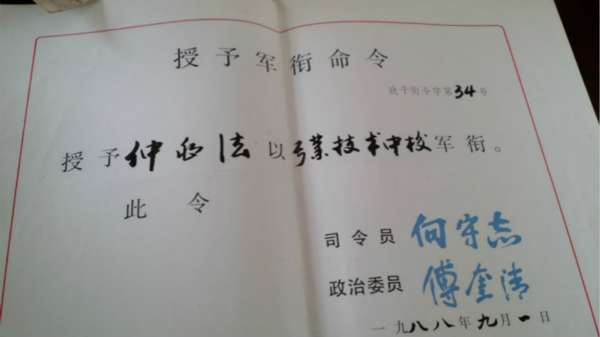 授予军衔命令
政干衔令字第34号
授予仲 法以专业技术中校军衔。
此令
司令员 向守志
政治委员 傅奎清
一九八八年九月一日